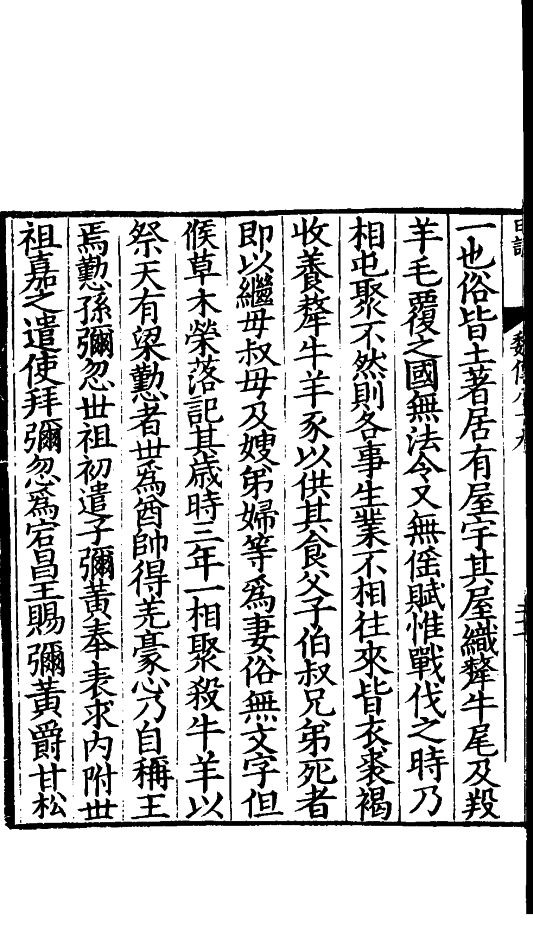 魏傳八十九
一也俗皆土著居有屋宇其屋織犛牛尾及羖
羊毛覆之國無法令又無傜賦惟戰伐之時乃
相屯聚不然則各事生業不相往來皆衣裘褐
收養犛牛羊豕以供其食父子伯叔兄弟死者
即以繼母叔母及嫂弟婦等爲妻俗無文字但
候草木榮落記其歲時三年一相聚殺牛羊以
祭天有梁懃者世爲酋帥得羌豪心乃自稱王
焉懃孫彌忽世祖初遣子彌黃奉表求內附世
祖嘉之遣使拜彌忽爲宕昌王賜彌黃爵甘松